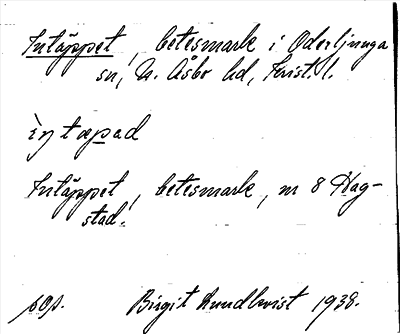 Intäppet, betesmark i Oderljunga
sn, N. Åsbo hd, Krist. l.
ìŋtæpad
Intäppet, betesmark, nr 8 Hag-
stad.
pop. Birgit Lundkvist 1938.